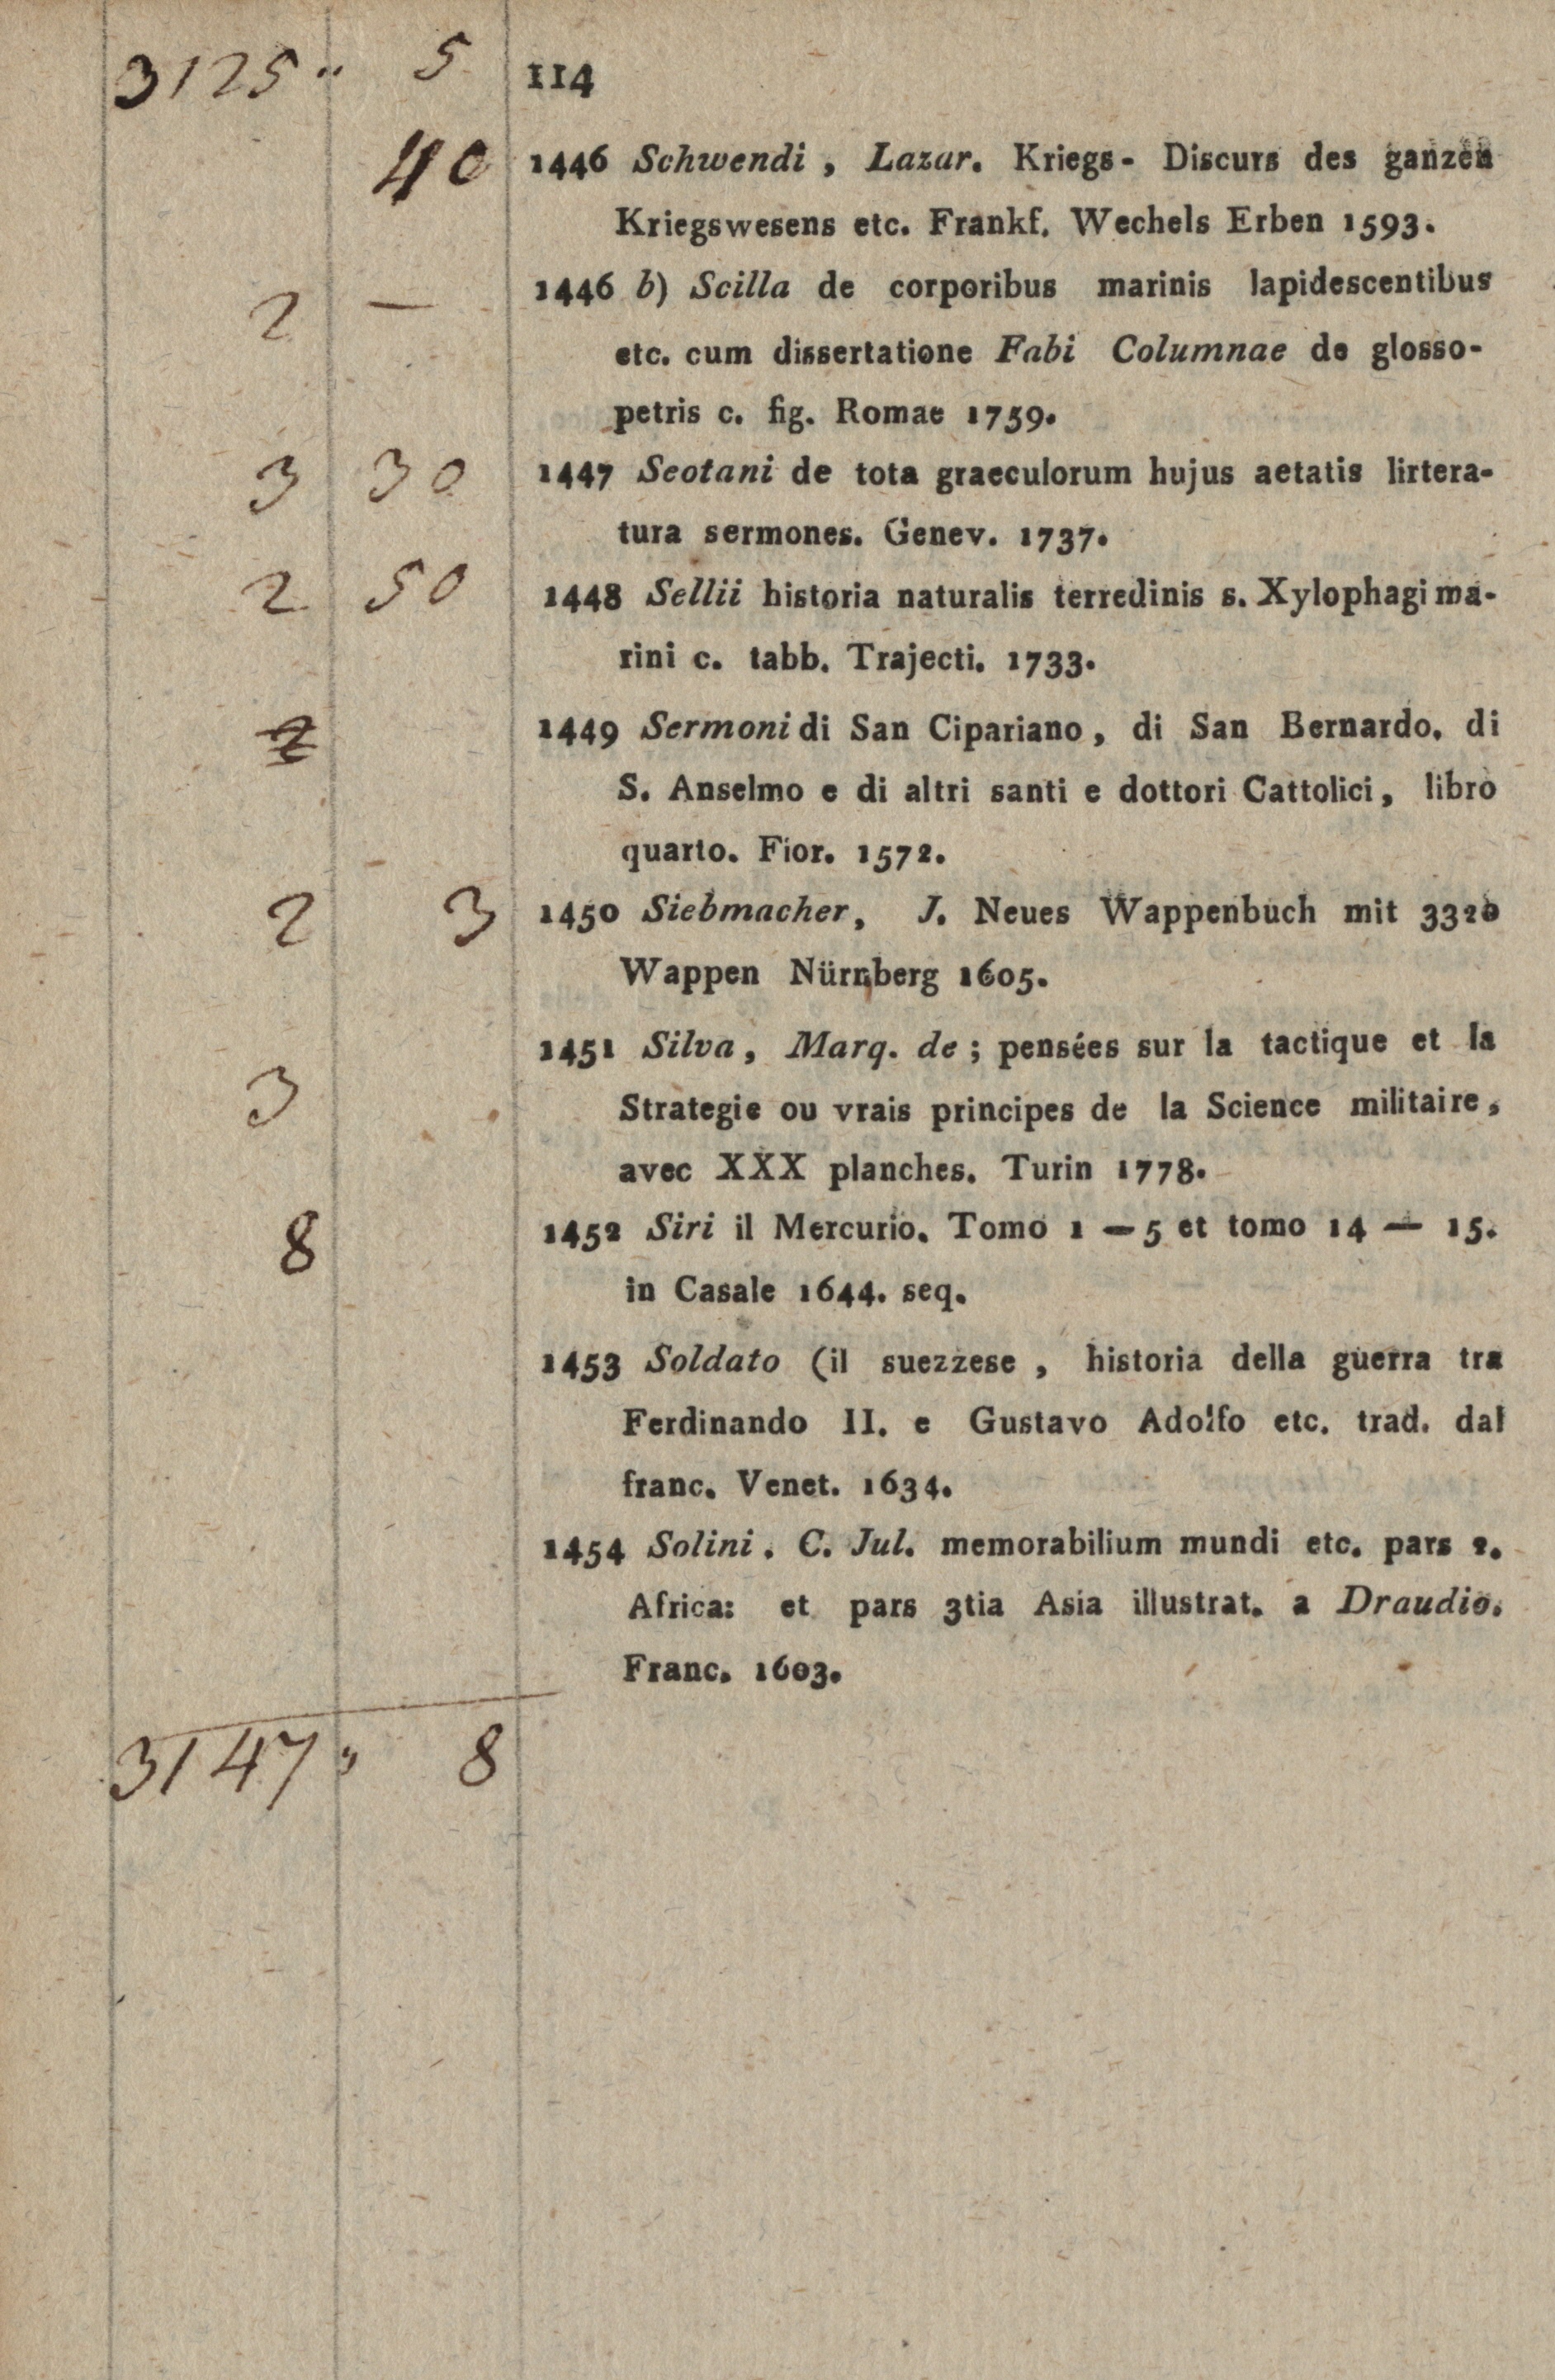 3125 " 5
114
40
1446 Schwendi , Lazar. Kriegs- Discurs des ganzen
Kriegswesens etc. Frankf. Wechels Erben 1593.
2 —
1446 b) Scilla de corporibus marinis lapidescentibus
etc. cum dissertatione Fabi Columnae de glosso-
petris c. fig. Romae 1759.
3 30
1447 Seotani de tota graeculorum hujus aetatis lirtera-
tura sermones. Genev. 1737.
2 50
1448 Sellii historia naturalis terredinis s. Xylophagi ma-
rini c. tabb. Trajecti. 1733.
1449 Sermoni di San Cipariano, di San Bernardo, di
S. Anselmo e di altri santi e dottori Cattolici, libro
quarto. Fior. 1572.
2 3
1450 Siebmacher, J. Neues Wappenbuch mit 3320
Wappen Nürnberg 1605.
3
1451 Silva, Marq. de; pensées sur la tactique et la
Strategie ou vrais principes de la Science militaire,
avec XXX planches. Turin 1778.
8
1452 Siri il Mercurio. Tomo 1 — 5 et tomo 14 — 15.
in Casale 1644. seq.
1453 Soldato (il suezzese , historia della guerra tra
Ferdinando II. e Gustavo Adolfo etc. trad. dal
franc. Venet. 1634.
1454 Solini. C. Jul. memorabilium mundi etc. pars 2.
Africa: et pars 3tia Asia illustrat. a Draudio.
Franc. 1603.
3147 " 8